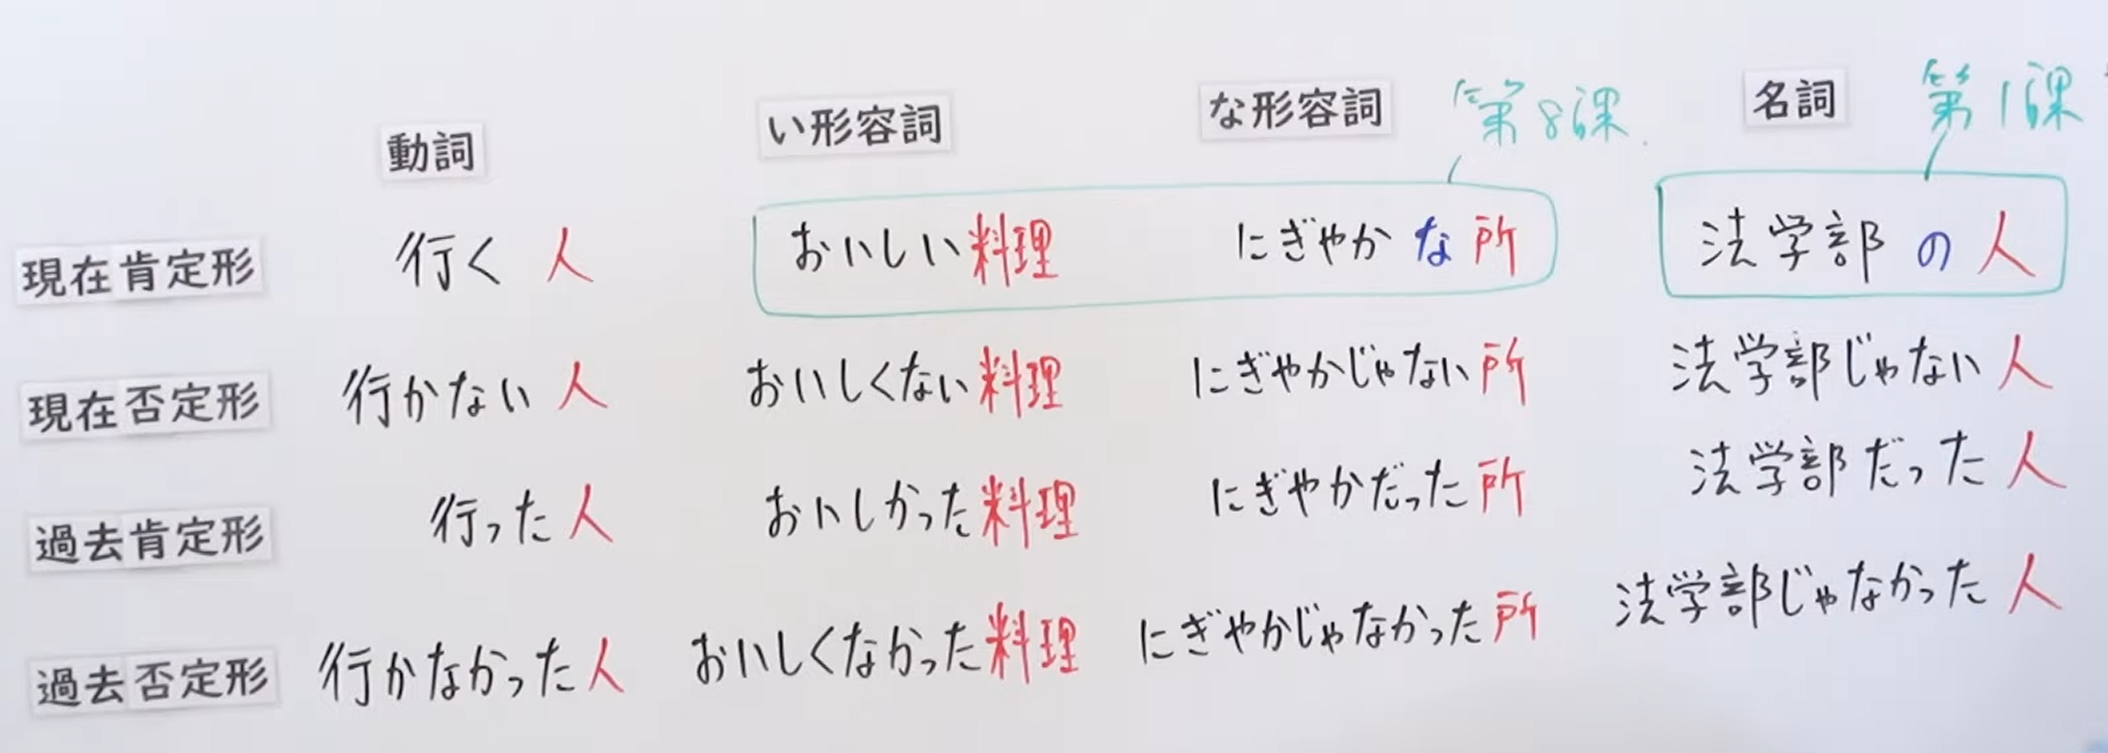 動詞 い形容詞 な形容詞 第8課 名詞 第1課
現在肯定形 行く人 おいしい料理 にぎやかな所 法学部の人
現在否定形 行かない人 おいしくない料理 にぎやかじゃない所 法学部じゃない人
過去肯定形 行った人 おいしかった料理 にぎやかだった所 法学部だった人
過去否定形 行かなかった人 おいしくなかった料理 にぎやかじゃなかった所 法学部じゃなかった人